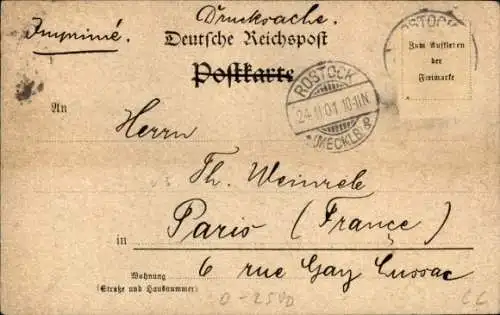 Drucksache.
Imprimé.
Deutsche Reichspost
Postkarte
ROSTOCK
Zum Aufkleben
der
Freimarke
ROSTOCK
24.11.01.10-11N.
(MECKLB)
An
Herrn
Th. Weinrele
Paris (France)
in
6 rue Gay Lussac
Wohnung
(Straße und Hausnummer)